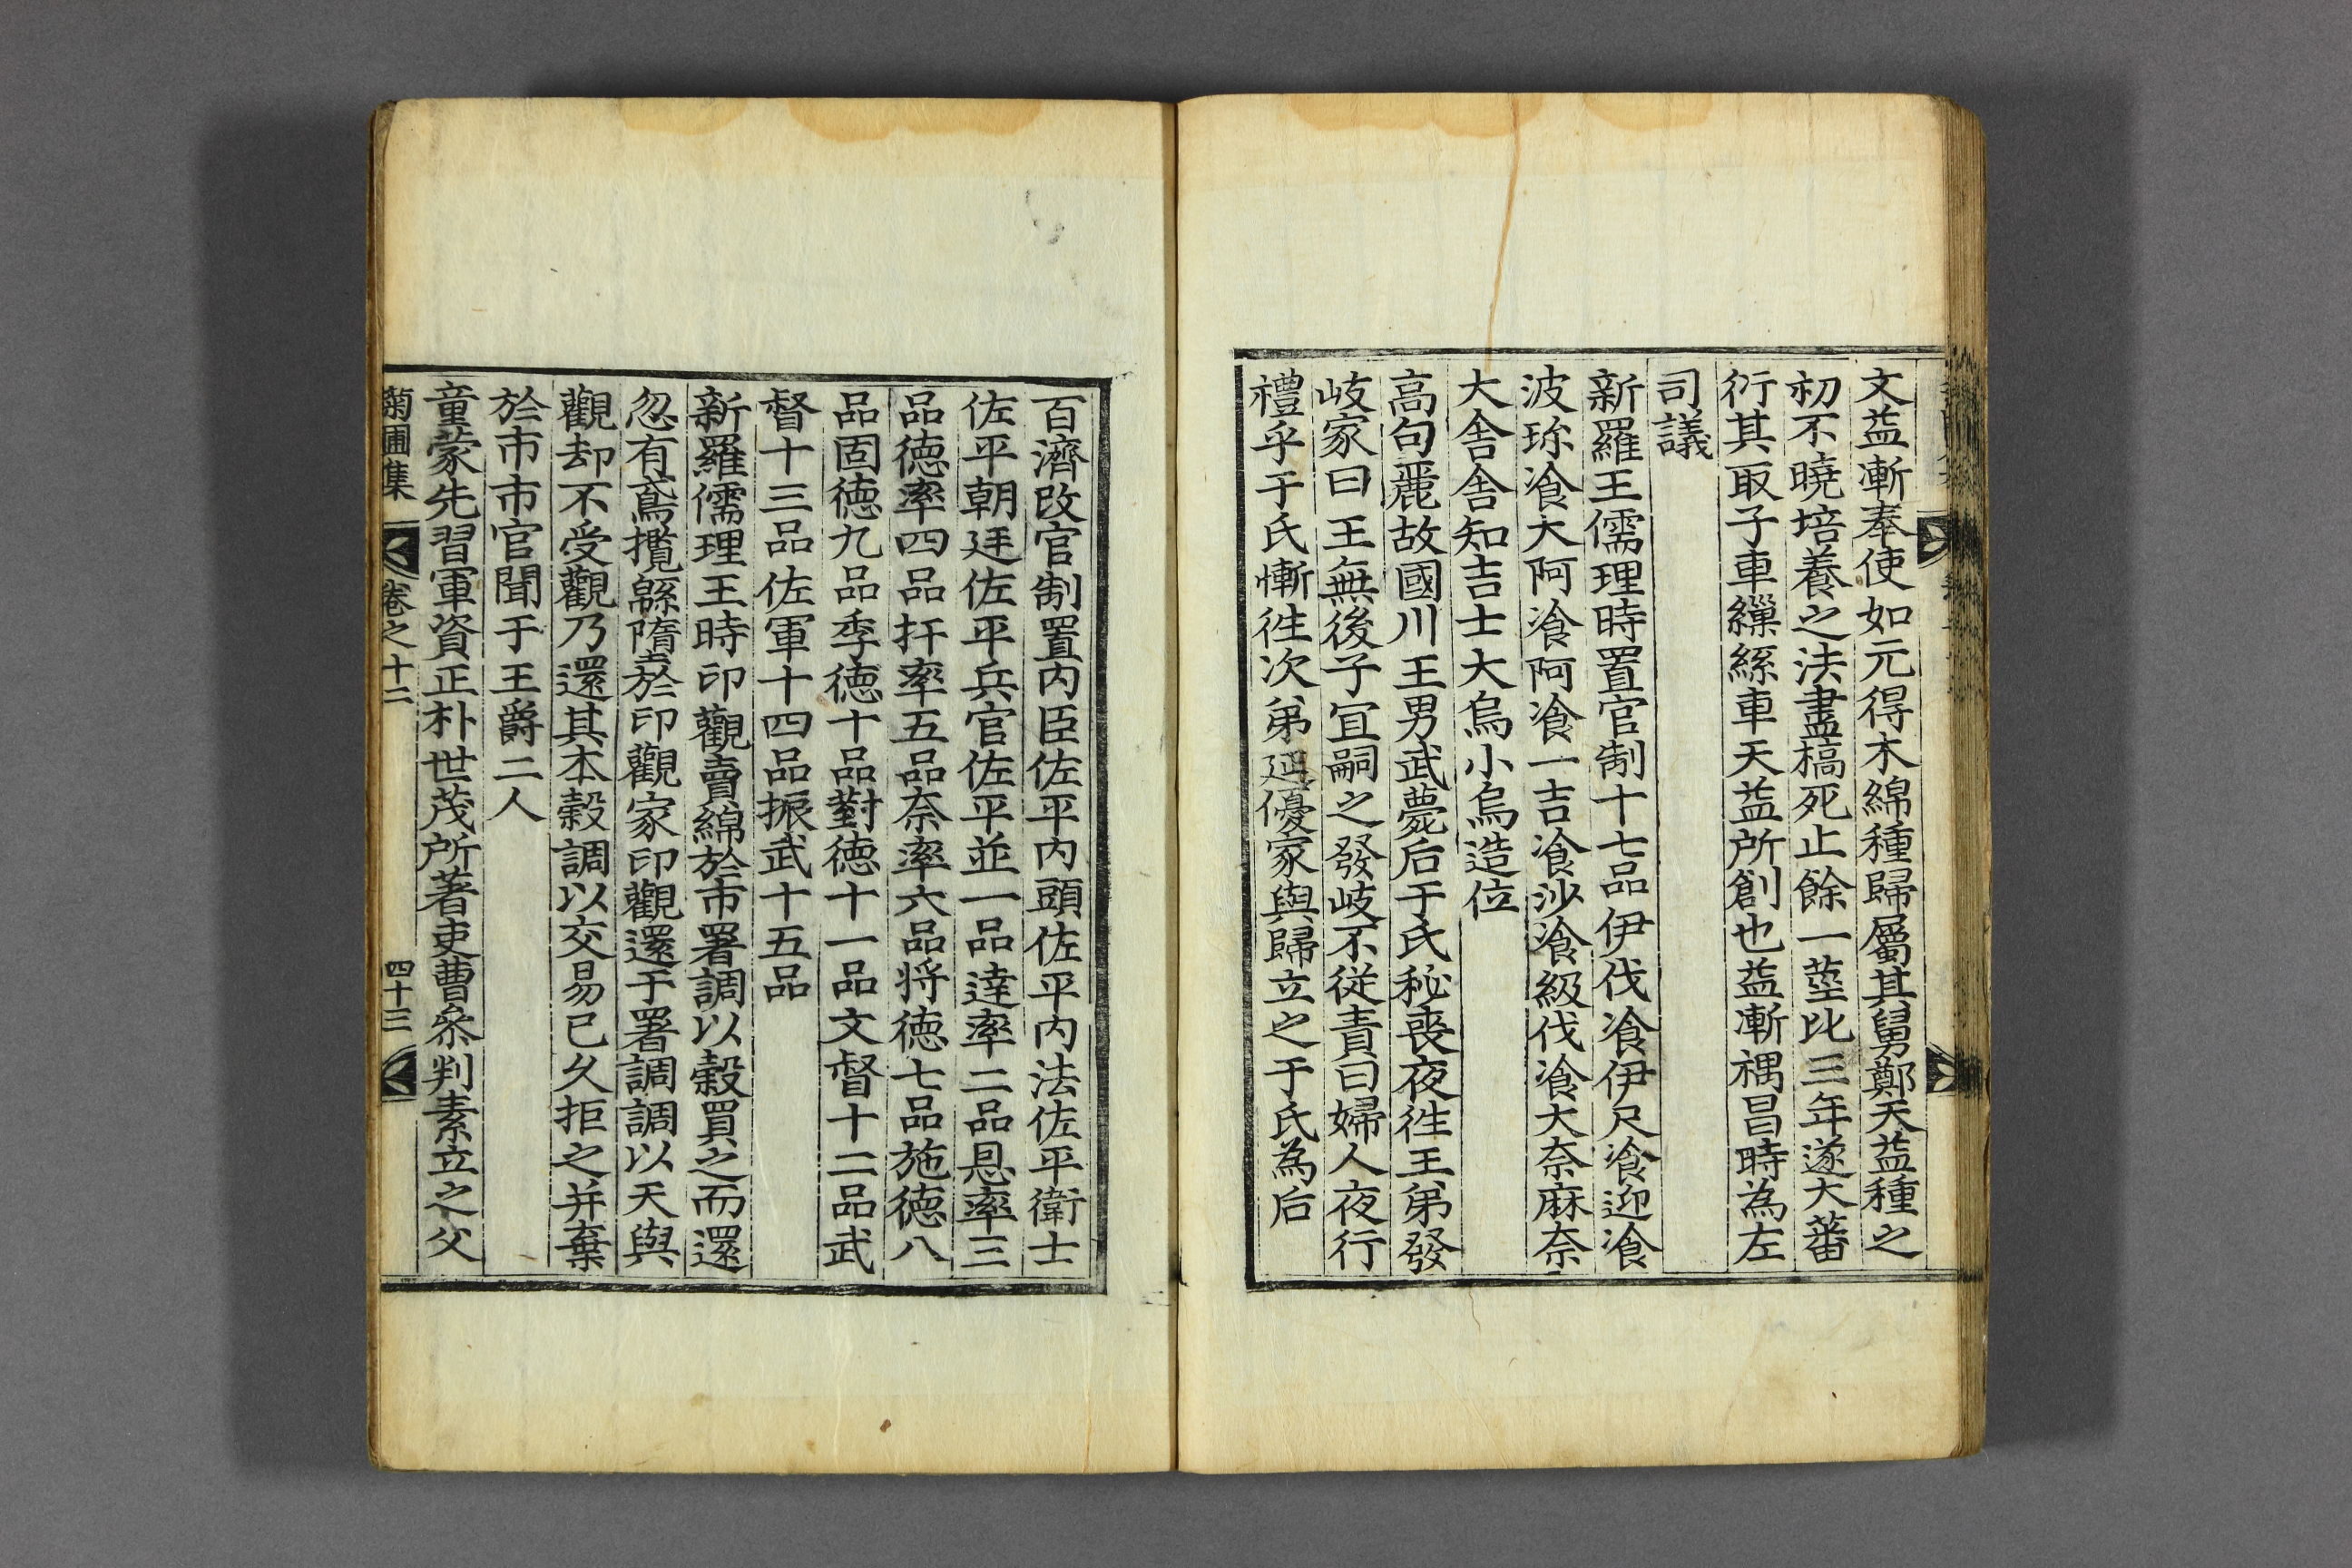 文益漸奉使如元得木綿種歸屬其舅鄭天益種之
初不曉培養之法盡槁死止餘一莖比三年遂大蕃
衍其取子車繅絲車天益所創也益漸禑昌時為左
司議
新羅王儒理時置官制十七品伊伐飡伊尺飡迎飡
波珎飡大阿飡阿飡一吉飡沙飡級伐飡大奈麻奈
大舍舍知吉士大烏小烏造位
高句麗故國川王男武薨后于氏秘喪夜徃王弟發
岐家曰王無後子宜嗣之發岐不從責曰婦人夜行
禮乎于氏慚徃次弟延優家與歸立之于氏為后
百濟改官制置內臣佐平內頭佐平內法佐平衛士
佐平朝廷佐平兵官佐平並一品達率二品恩率三
品徳率四品扞率五品奈率六品将徳七品施徳八
品固徳九品季徳十品對徳十一品文督十二品武
督十三品佐軍十四品振武十五品
新羅儒理王時印觀賣綿於市署調以穀買之而還
忽有鳶攬緜墮於印觀家印觀還于署調調以天與
觀却不受觀乃還其本穀調以交易已久拒之并棄
於市市官聞于王爵二人
童蒙先習軍資正朴世茂所著吏曹叅判素立之父
菊圃集 卷之十二 四十三